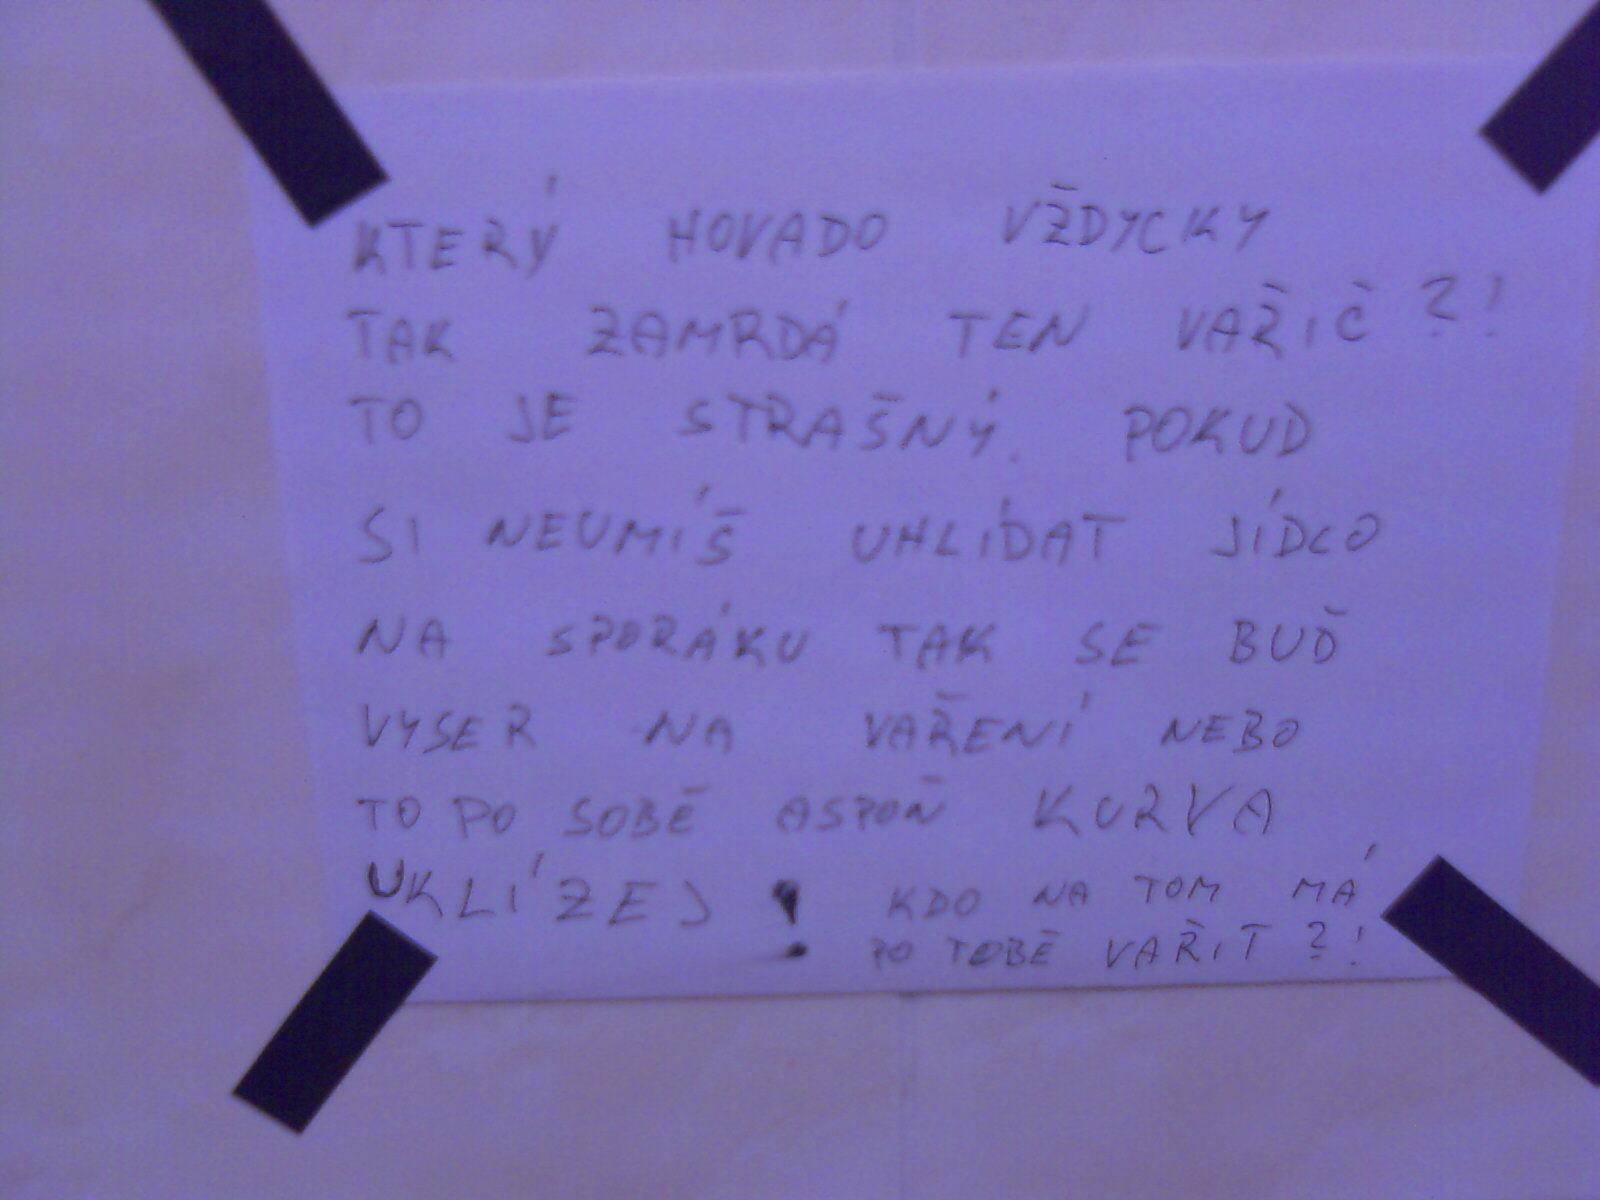 KTERÝ HOVADO VŽDYCKY
TAK ZAMRDÁ TEN VAŘIČ?!
TO JE STRAŠNÝ. POKUD
SI NEUMÍŠ UHLÍDAT JÍDLO
NA SPORÁKU TAK SE BUĎ
VYSER NA VAŘENÍ NEBO
TO PO SOBĚ ASPOŇ KURVA
UKLÍZEJ! KDO NA TOM MÁ
PO TOBĚ VAŘIT?!